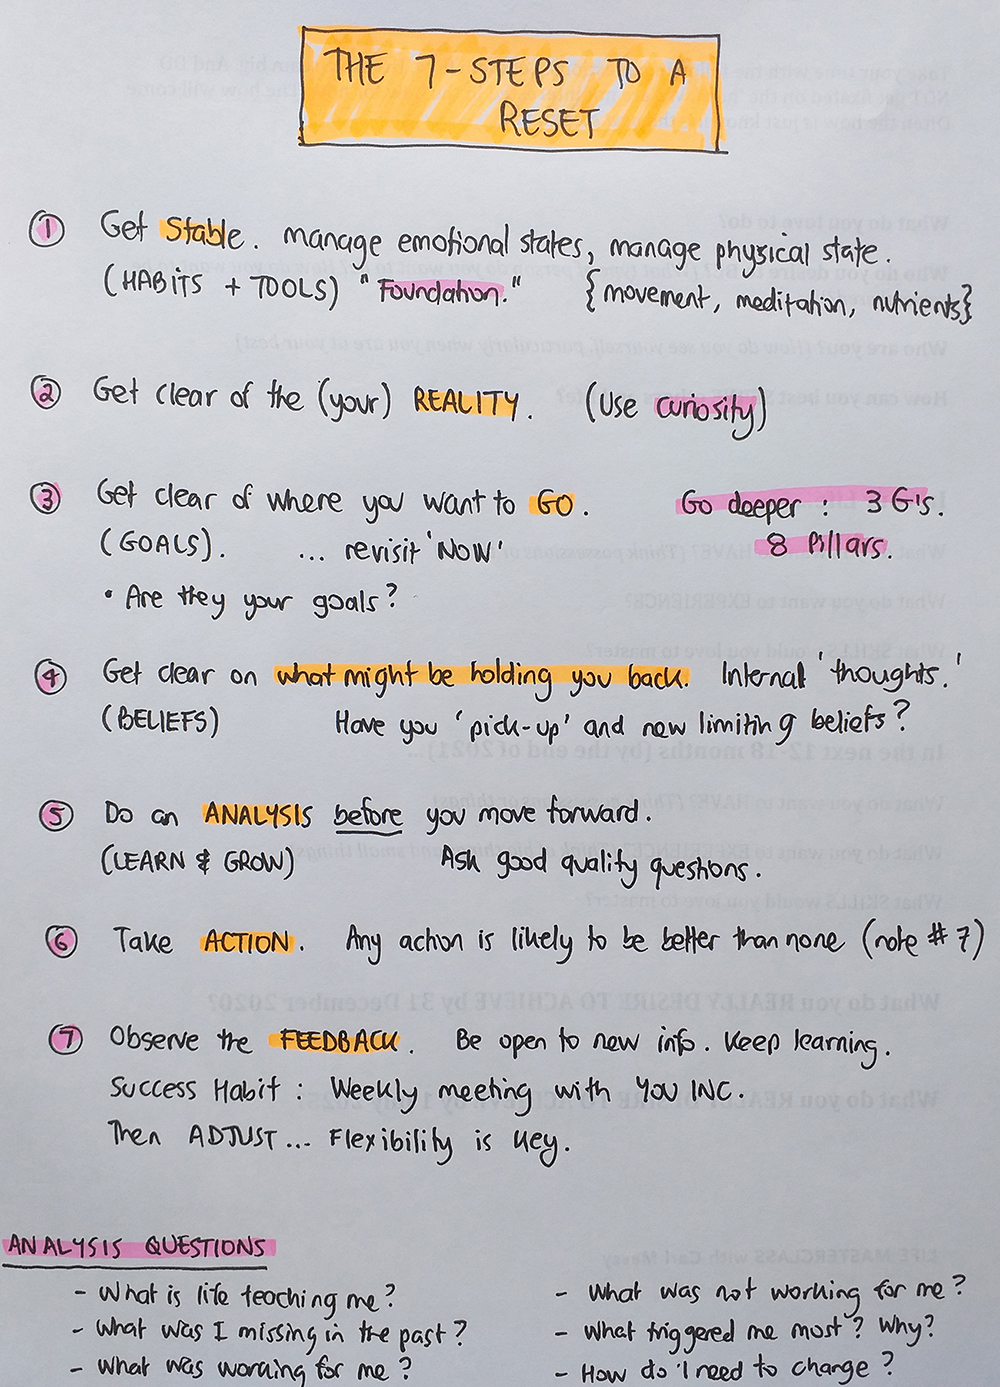 THE 7-STEPS TO A
RESET
1 Get Stable. manage emotional states, manage physical state.
(HABITS + TOOLS) "Foundation." {movement, meditation, nutrients}
2 Get clear of the (your) REALITY. (Use curiosity)
3 Get clear of where you want to GO. Go deeper : 3 G's.
(GOALS). ... revisit 'NOW' 8 Pillars.
• Are they your goals?
4 Get clear on what might be holding you back. Internal 'thoughts.'
(BELIEFS) Have you 'pick-up' and new limiting beliefs?
5 Do an ANALYSIS before you move forward.
(LEARN & GROW) Ask good quality questions.
6 Take ACTION. Any action is likely to be better than none (note #7)
7 Observe the FEEDBACK. Be open to new info. Keep learning.
Success Habit : Weekly meeting with YOU INC.
Then ADJUST... Flexibility is key.
ANALYSIS QUESTIONS
- What is life teaching me?
- What was I missing in the past?
- What was working for me?
- What was not working for me?
- What triggered me most? Why?
- How do I need to change?